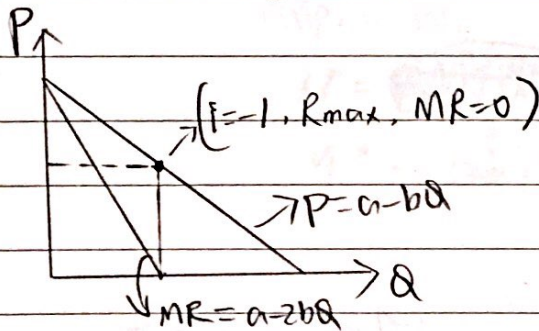 P
(E=-1, Rmax, MR=0)
P=a-bQ
Q
MR=a-2bQ